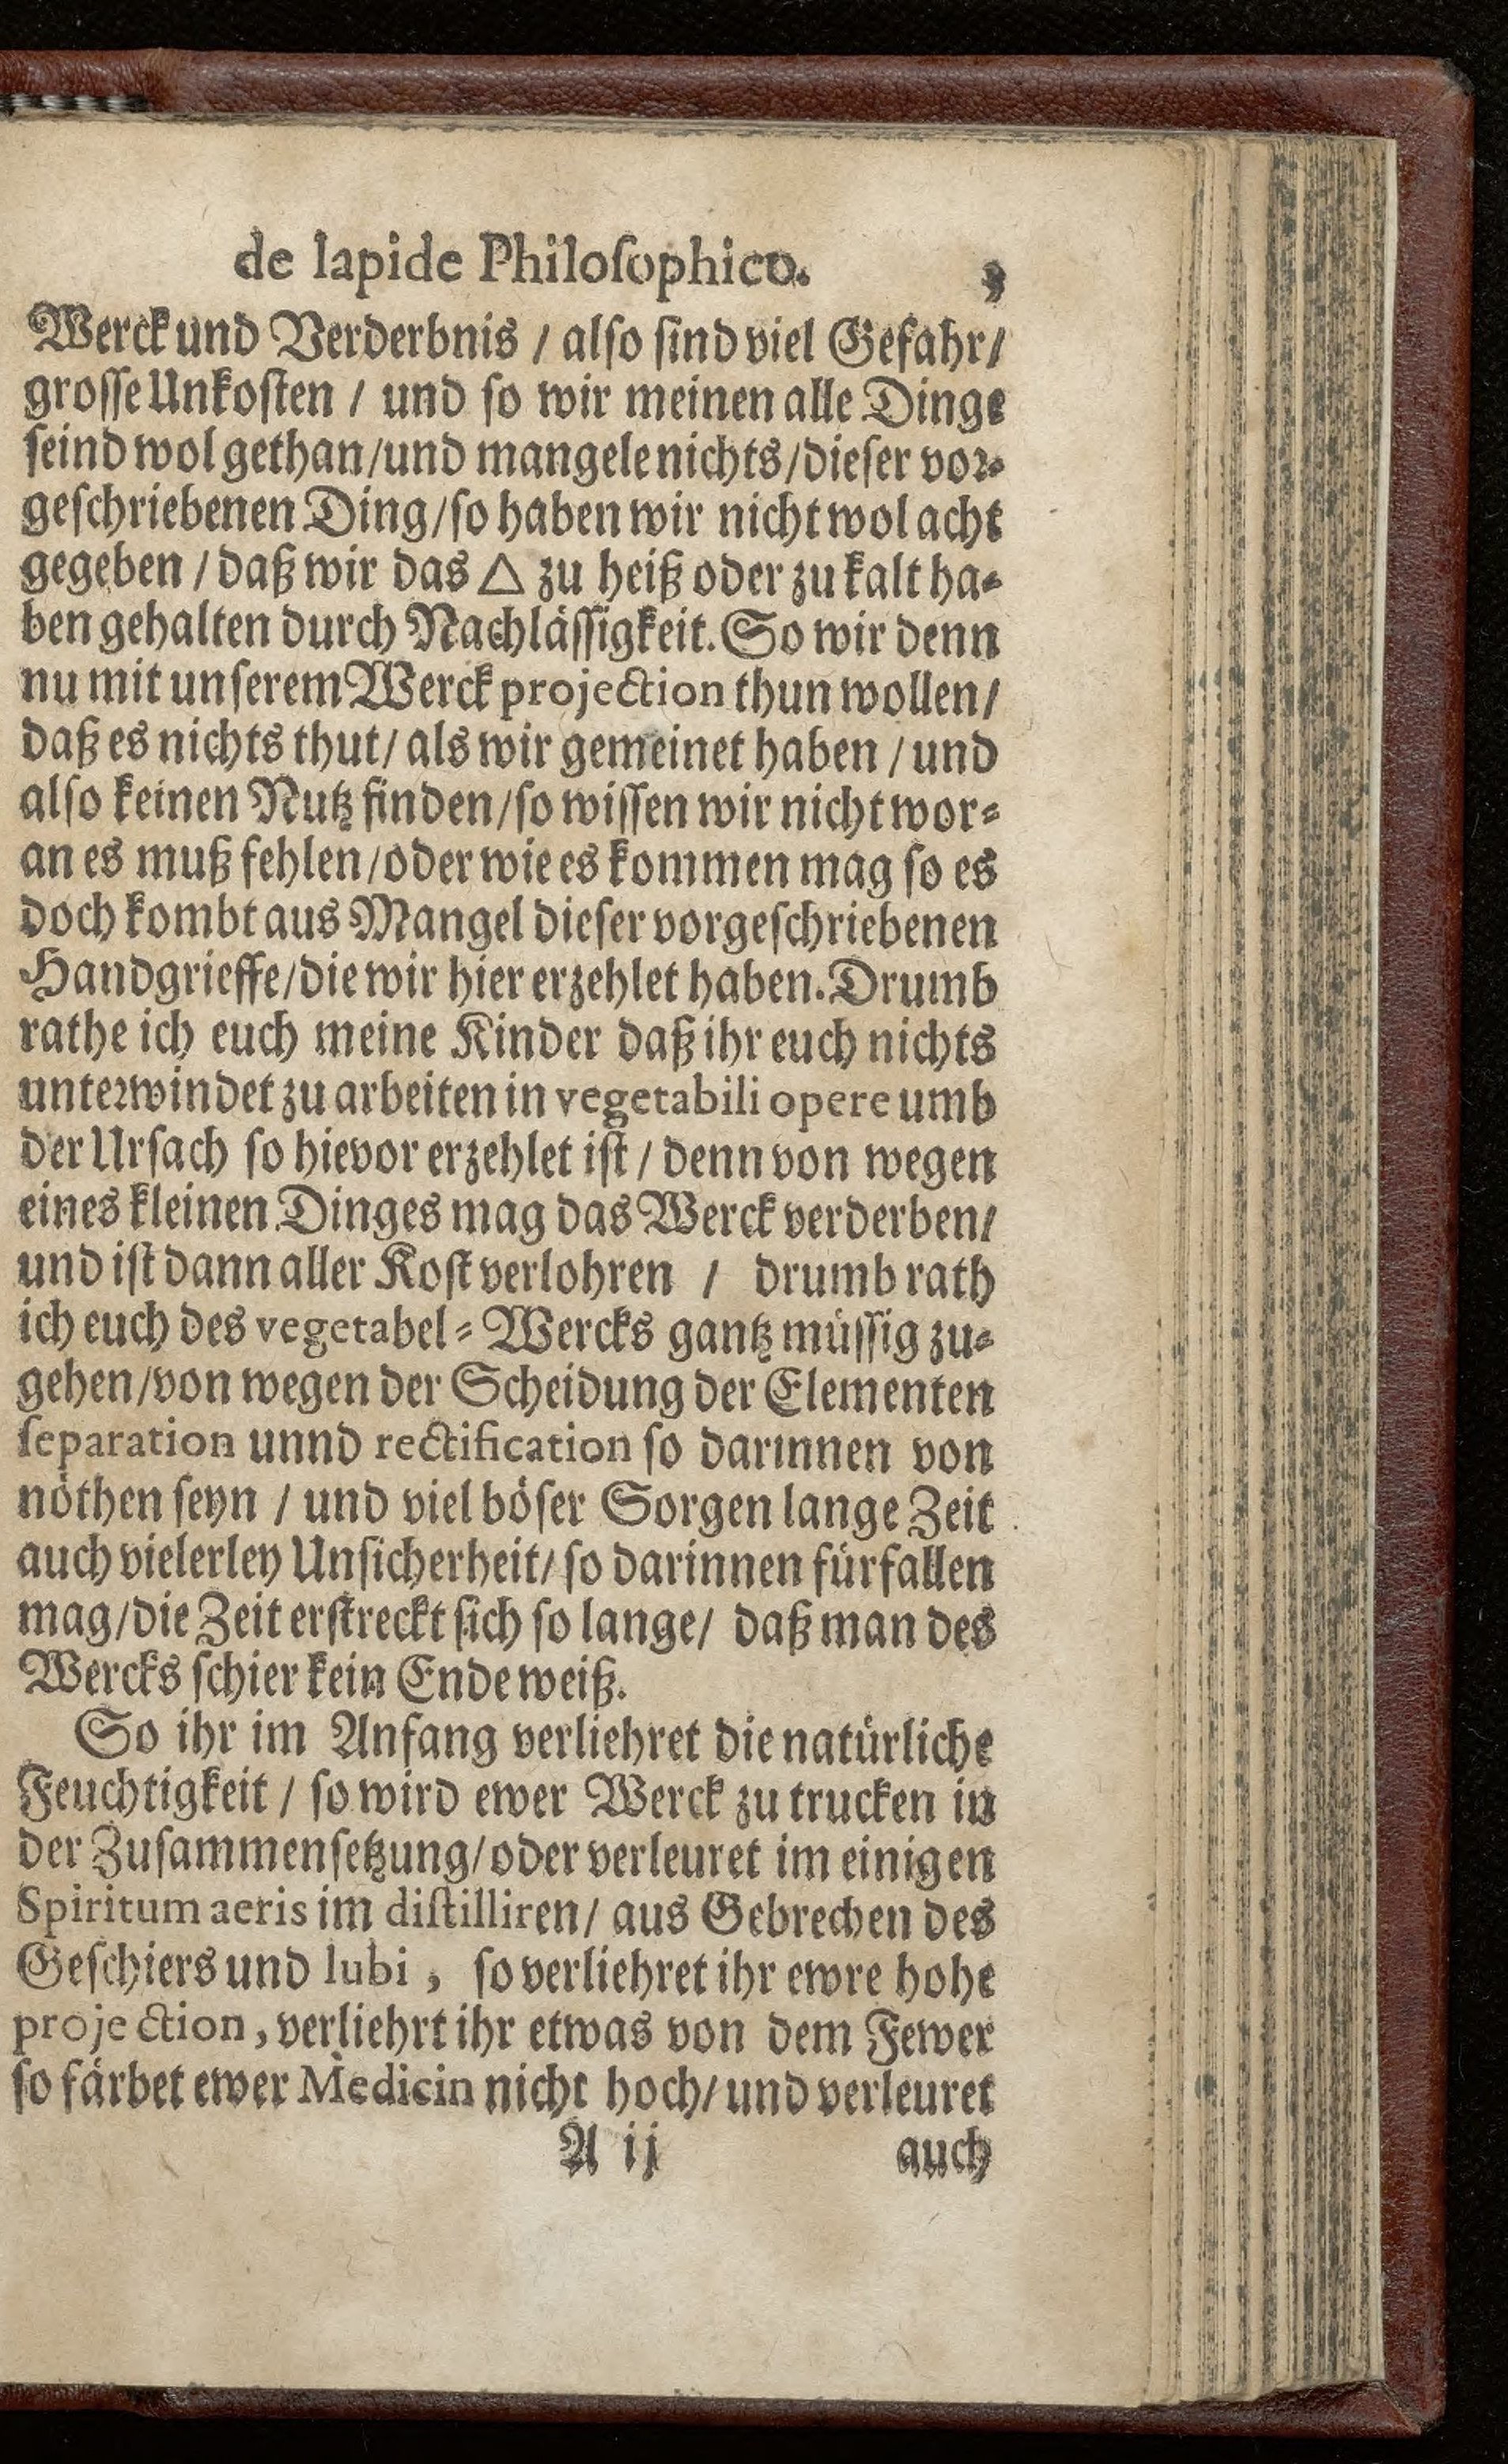 de lapide Philoſophico. 3
Werck und Verderbnis / alſo ſind viel Gefahr /
groſſe Unkoſten / und ſo wir meinen alle Dinge
ſeind wol gethan / und mangele nichts / dieſer vor-
geſchriebenen Ding / ſo haben wir nicht wol acht
gegeben / daß wir das △ zu heiß oder zu kalt ha-
ben gehalten durch Nachläſſigkeit. So wir denn
nu mit unſerem Werck projection thun wollen /
daß es nichts thut / als wir gemeinet haben / und
alſo keinen Nutz finden / ſo wiſſen wir nicht wor-
an es muß fehlen / oder wie es kommen mag ſo es
doch kombt aus Mangel dieſer vorgeſchriebenen
Handgrieffe / die wir hier erzehlet haben. Drumb
rathe ich euch meine Kinder daß ihr euch nichts
unterwindet zu arbeiten in vegetabili opere umb
der Urſach ſo hievor erzehlet iſt / denn von wegen
eines kleinen Dinges mag das Werck verderben /
und iſt dann aller Koſt verlohren / drumb rath
ich euch des vegetabel-Wercks gantz müſſig zu-
gehen / von wegen der Scheidung der Elementen
ſeparation unnd rectification ſo darinnen von
nöthen ſeyn / und viel böſer Sorgen lange Zeit
auch vielerley Unſicherheit / ſo darinnen fürfallen
mag / die Zeit erſtreckt ſich ſo lange / daß man des
Wercks ſchier kein Ende weiß.
So ihr im Anfang verliehret die natürliche
Feuchtigkeit / ſo wird ewer Werck zu trucken in
der Zuſammenſetzung / oder verleuret im einigen
Spiritum aeris im diſtilliren / aus Gebrechen des
Geſchiers und lubi, ſo verliehret ihr ewre hohe
projection, verliehrt ihr etwas von dem Fewer
ſo färbet ewer Medicin nicht hoch / und verleuret
A ij auch